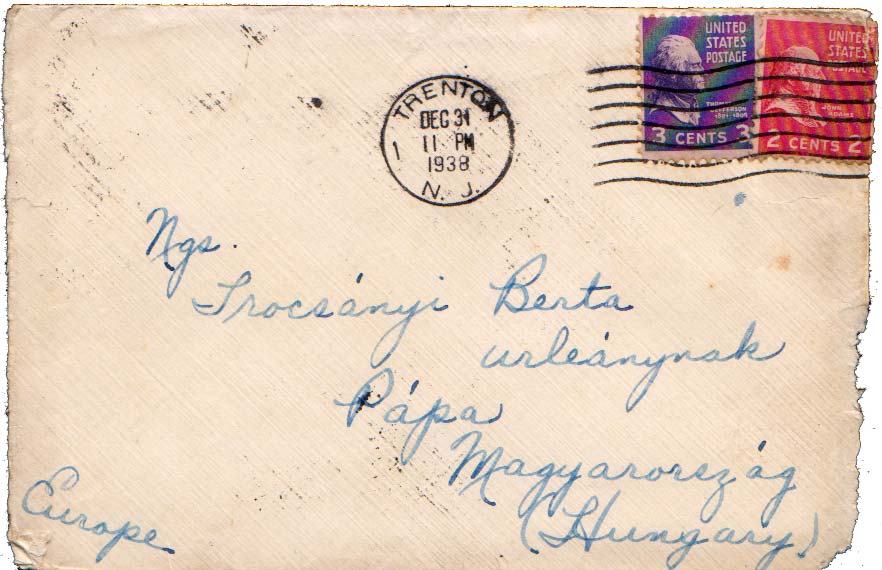 UNITED
STATES
POSTAGE
THOMAS
JEFFERSON
1801-1809
3 CENTS 3
UNITED
STATES
POSTAGE
JOHN
ADAMS
2 CENTS 2
TRENTON
1
DEC 31
11 PM
1938
N. J.
Ngs.
Trocsányi Berta
urleánynak
Pápa
Magyarország
(Hungary)
Europe